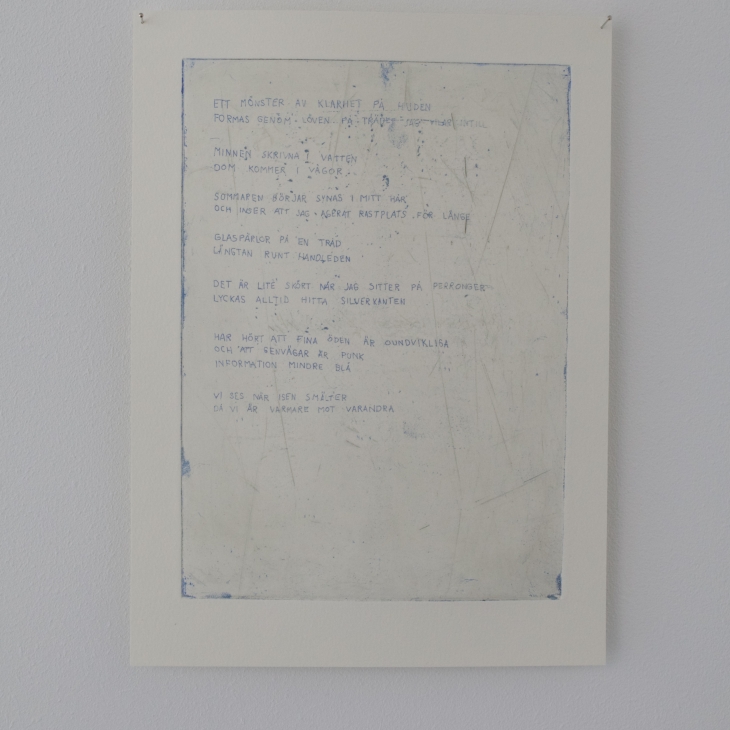 ETT MÖNSTER AV KLARHET PÅ HUDEN
FORMAS GENOM LÖVEN PÅ TRÄDET
MINNEN SKRIVNA I VATTEN
DOM KOMMER I VÅGOR
SOMMAREN BÖRJAR SYNAS I MITT HÅR
OCH INSER ATT JAG RASTPLATS FÖR LÄNGE
GLASPÄRLOR PÅ EN TRÅD
LÄNGTAN RUNT HANDLEDEN
DET ÄR LITE SKÖRT NÄR JAG SITTER PÅ PERRONGER
LYCKAS ALLTID HITTA SILVERKANTEN
HAR HÖRT ATT FINA ÖDEN ÄR OUNDVIKLIGA
OCH ATT GENVÄGAR ÄR FUNK
INFORMATION MINDRE BLÅ
VI SES NÄR ISEN SMÄLTER
DÅ VI ÄR VARMARE MOT VARANDRA